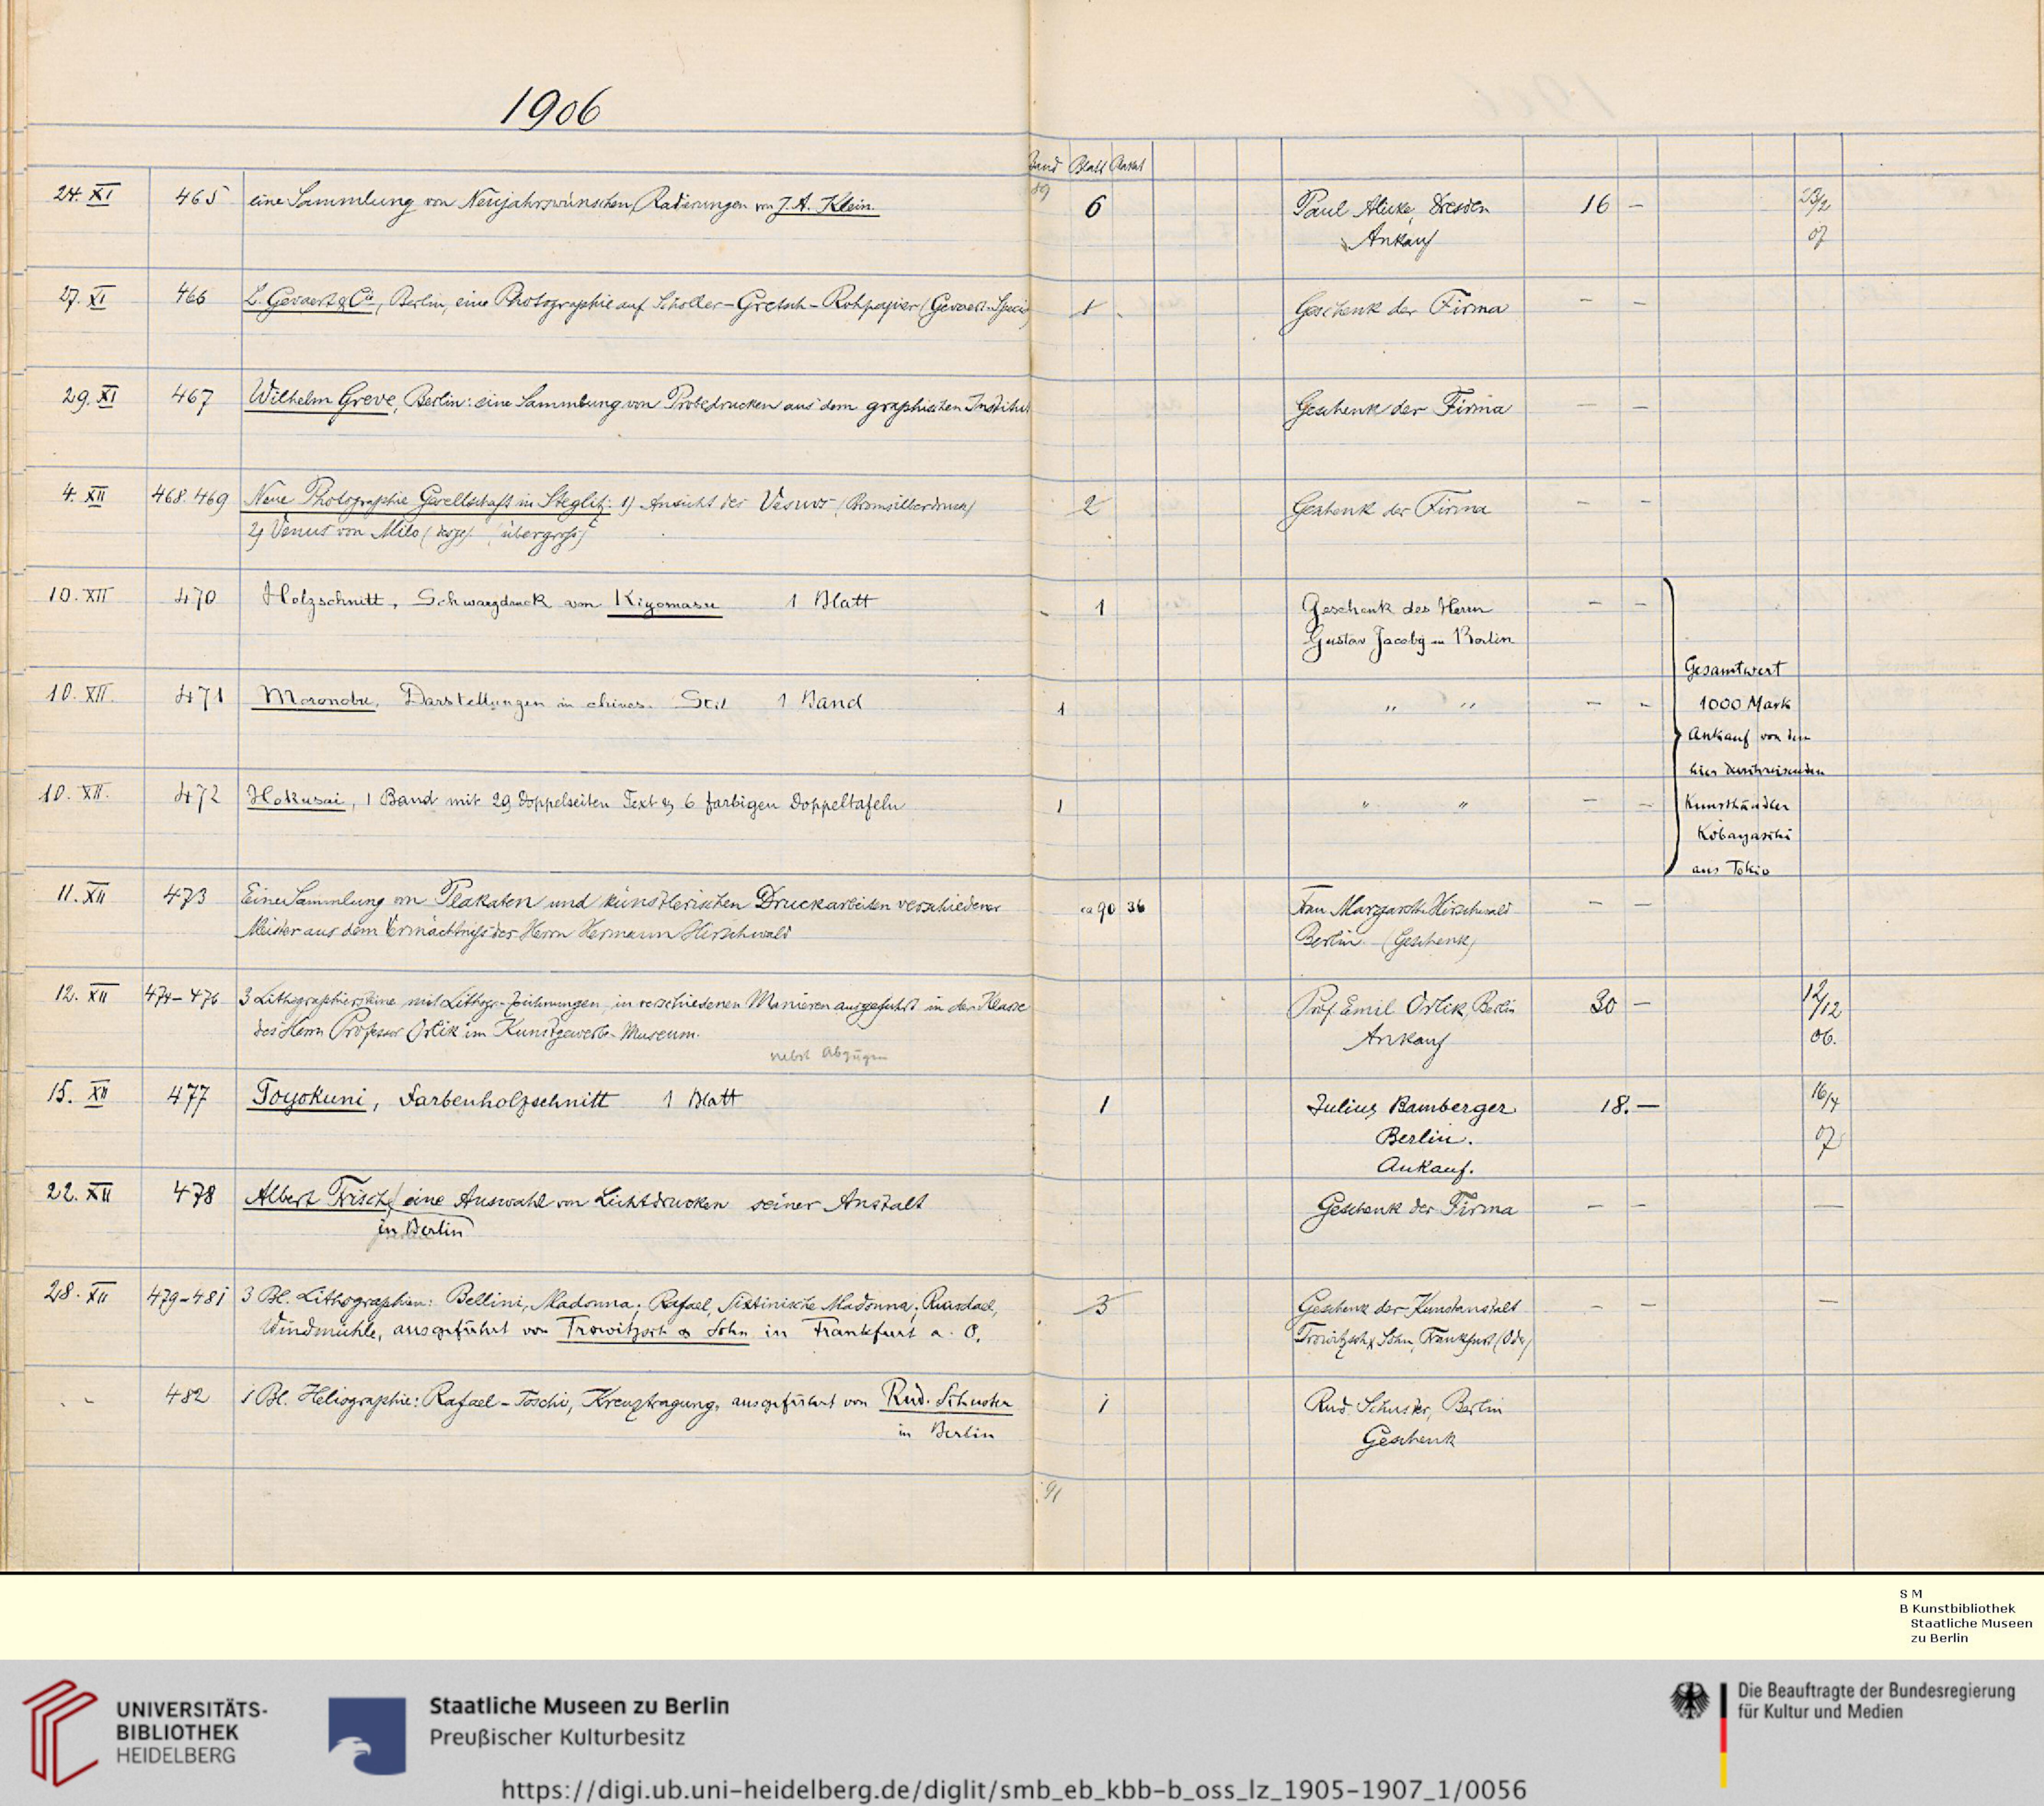 1906
Band Blatt Plakat
89
24. XI 465 eine Sammlung von Neujahrswünschen, Radierungen von J. A. Klein. 6 Paul Alicke, Dresden 16 — 23/2
Ankauf 07
27. XI 466 L. Gevaert & Cie, Berlin, eine Photographie auf Schoeller-Gretsch-Rohpapier (Gevaert-Special) 1 Geschenk der Firma — —
29. XI 467 Wilhelm Greve, Berlin: eine Sammlung von Probedrucken aus dem graphischen Institut Geschenk der Firma — —
4. XII 468. 469 Neue Photographie Gesellschaft in Steglitz: 1) Ansicht des Vesuvs (Bromsilberdruck) 2 Geschenk der Firma — —
2) Venus von Milo (desgl.) (übergross)
10. XII 470 Holzschnitt, Schwarzdruck von Kiyomasu 1 Blatt 1 Geschenk des Herrn — —
Gustav Jacoby in Berlin
10. XII. 471 Moronobu, Darstellungen in chines. Stil 1 Band 1 " " — —
10. XII. 472 Hokusai, 1 Band mit 29 Doppelseiten Text & 6 farbigen Doppeltafeln 1 " " — —
Gesamtwert
1000 Mark
Ankauf von dem
hier durchreisenden
Kunsthändler
Kobayaschi
aus Tokio
11. XII 473 Eine Sammlung von Plakaten und künstlerischen Druckarbeiten verschiedener ca 90 36 Frau Margarethe Hirschwald — —
Meister aus dem Vermächtniss des Herrn Hermann Hirschwald Berlin (Geschenk)
12. XII 474–476 3 Lithographiersteine mit Lithogr.-Zeichnungen, in verschiedenen Manieren ausgeführt in der Klasse Prof. Emil Orlik, Berlin 30 — 12/12
des Herrn Professor Orlik im Kunstgewerbe-Museum. Ankauf 06.
nebst Abzügen
15. XII 477 Toyokuni, Farbenholzschnitt 1 Blatt 1 Julius Bamberger 18. — 16/4
Berlin. 07
Ankauf.
22. XII 478 Albert Frisch, eine Auswahl von Lichtdrucken seiner Anstalt Geschenk der Firma — — —
in Berlin
28. XII 479–481 3 Bl. Lithographien: Bellini, Madonna; Rafael, Sixtinische Madonna; Ruisdael, 3 Geschenk der Kunstanstalt — — —
Windmühle, ausgeführt von Trowitzsch & Sohn in Frankfurt a. O. Trowitzsch & Sohn, Frankfurt (Oder)
482 1 Bl. Heliographie: Rafael-Toschi, Kreuztragung, ausgeführt von Rud. Schuster 1 Rud. Schuster, Berlin
in Berlin Geschenk
91
S M
B Kunstbibliothek
Staatliche Museen
zu Berlin
UNIVERSITÄTS-
BIBLIOTHEK
HEIDELBERG
Staatliche Museen zu Berlin
Preußischer Kulturbesitz
Die Beauftragte der Bundesregierung
für Kultur und Medien
https://digi.ub.uni-heidelberg.de/diglit/smb_eb_kbb-b_oss_lz_1905-1907_1/0056